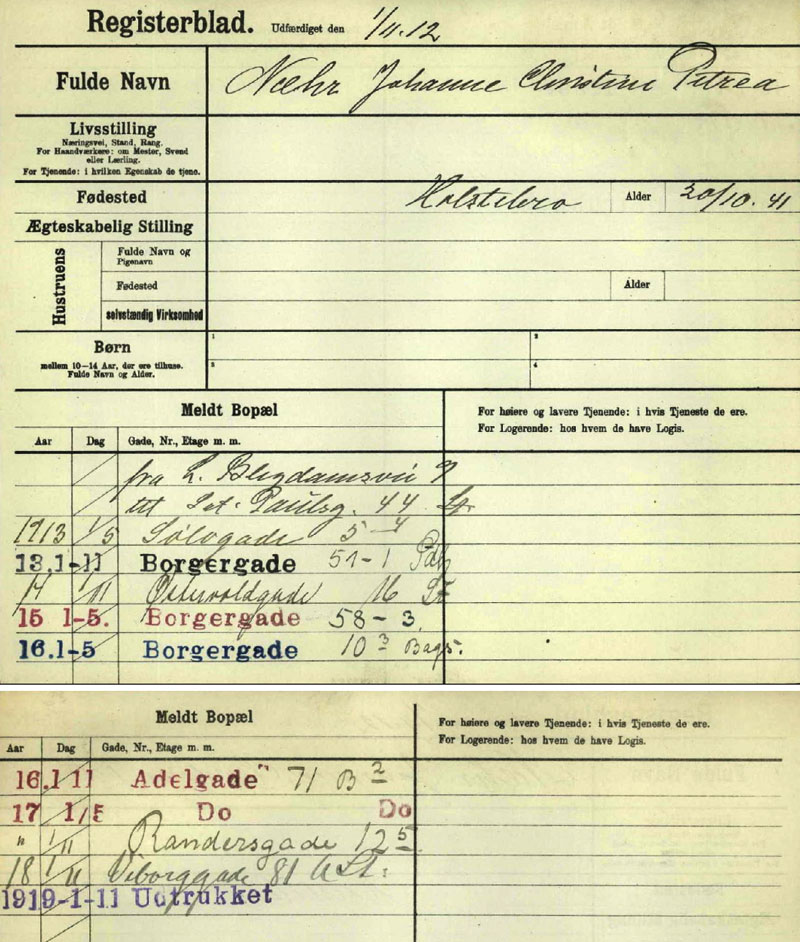 Registerblad. Udfærdiget den 1/11.12
Fulde Navn Næhr Johanne Christine Petrea
Livsstilling
Næringsvei, Stand, Rang.
For Haandværkere: om Mester, Svend
eller Lærling.
For Tjenende: i hvilken Egenskab de tjene.
Fødested Holstebro Alder 20/10. 41
Ægteskabelig Stilling
Hustruens
Fulde Navn og
Pigenavn
Fødested Alder
selvstændig Virksomhed
Børn
mellem 10—14 Aar, der ere tilhuse.
Fulde Navn og Alder.
1 2
3 4
Meldt Bopæl
For høiere og lavere Tjenende: i hvis Tjeneste de ere.
For Logerende: hos hvem de have Logis.
Aar Dag Gade, Nr., Etage m. m.
fra L. Blegdamsvei 9
til Sct. Paulsg. 44 St.
1913 1/5 Sølvgade 5 - 4
13.1-11 Borgergade 51 - 1
14 1/11 Østervoldgade 16 St
15 1-5. Borgergade 58 - 3
16.1-5 Borgergade 10 3 Bags.
Meldt Bopæl
For høiere og lavere Tjenende: i hvis Tjeneste de ere.
For Logerende: hos hvem de have Logis.
Aar Dag Gade, Nr., Etage m. m.
16.1-11 Adelgade 71 B 2
17 1/5 Do Do
" 1/11 Randersgade 12 5
18 1/11 Viborggade 81 St.
1919-1-11 Udtrukket